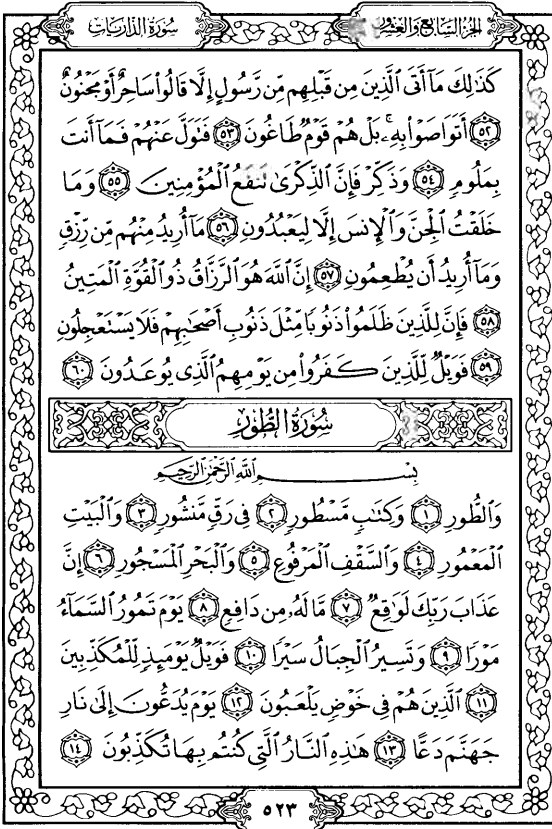 سُورَةُ الذَّارِيَاتِ
الجُزْءُ السَّابِعُ وَالعِشْرُونَ
كَذَٰلِكَ مَآ أَتَى ٱلَّذِينَ مِن قَبْلِهِم مِّن رَّسُولٍ إِلَّا قَالُوا۟ سَاحِرٌ أَوْ مَجْنُونٌ
﴿٥٢﴾ أَتَوَاصَوْا۟ بِهِۦ ۚ بَلْ هُمْ قَوْمٌ طَاغُونَ ﴿٥٣﴾ فَتَوَلَّ عَنْهُمْ فَمَآ أَنتَ
بِمَلُومٍ ﴿٥٤﴾ وَذَكِّرْ فَإِنَّ ٱلذِّكْرَىٰ تَنفَعُ ٱلْمُؤْمِنِينَ ﴿٥٥﴾ وَمَا
خَلَقْتُ ٱلْجِنَّ وَٱلْإِنسَ إِلَّا لِيَعْبُدُونِ ﴿٥٦﴾ مَآ أُرِيدُ مِنْهُم مِّن رِّزْقٍ
وَمَآ أُرِيدُ أَن يُطْعِمُونِ ﴿٥٧﴾ إِنَّ ٱللَّهَ هُوَ ٱلرَّزَّاقُ ذُو ٱلْقُوَّةِ ٱلْمَتِينُ
﴿٥٨﴾ فَإِنَّ لِلَّذِينَ ظَلَمُوا۟ ذَنُوبًا مِّثْلَ ذَنُوبِ أَصْحَٰبِهِمْ فَلَا يَسْتَعْجِلُونِ
﴿٥٩﴾ فَوَيْلٌ لِّلَّذِينَ كَفَرُوا۟ مِن يَوْمِهِمُ ٱلَّذِى يُوعَدُونَ ﴿٦٠﴾
سُورَةُ الطُّورِ
بِسْمِ ٱللَّهِ ٱلرَّحْمَٰنِ ٱلرَّحِيمِ
وَٱلطُّورِ ﴿١﴾ وَكِتَٰبٍ مَّسْطُورٍ ﴿٢﴾ فِى رَقٍّ مَّنشُورٍ ﴿٣﴾ وَٱلْبَيْتِ
ٱلْمَعْمُورِ ﴿٤﴾ وَٱلسَّقْفِ ٱلْمَرْفُوعِ ﴿٥﴾ وَٱلْبَحْرِ ٱلْمَسْجُورِ ﴿٦﴾ إِنَّ
عَذَابَ رَبِّكَ لَوَٰقِعٌ ﴿٧﴾ مَّا لَهُۥ مِن دَافِعٍ ﴿٨﴾ يَوْمَ تَمُورُ ٱلسَّمَآءُ
مَوْرًا ﴿٩﴾ وَتَسِيرُ ٱلْجِبَالُ سَيْرًا ﴿١٠﴾ فَوَيْلٌ يَوْمَئِذٍ لِّلْمُكَذِّبِينَ
﴿١١﴾ ٱلَّذِينَ هُمْ فِى خَوْضٍ يَلْعَبُونَ ﴿١٢﴾ يَوْمَ يُدَعُّونَ إِلَىٰ نَارِ
جَهَنَّمَ دَعًّا ﴿١٣﴾ هَٰذِهِ ٱلنَّارُ ٱلَّتِى كُنتُم بِهَا تُكَذِّبُونَ ﴿١٤﴾
٥٢٣